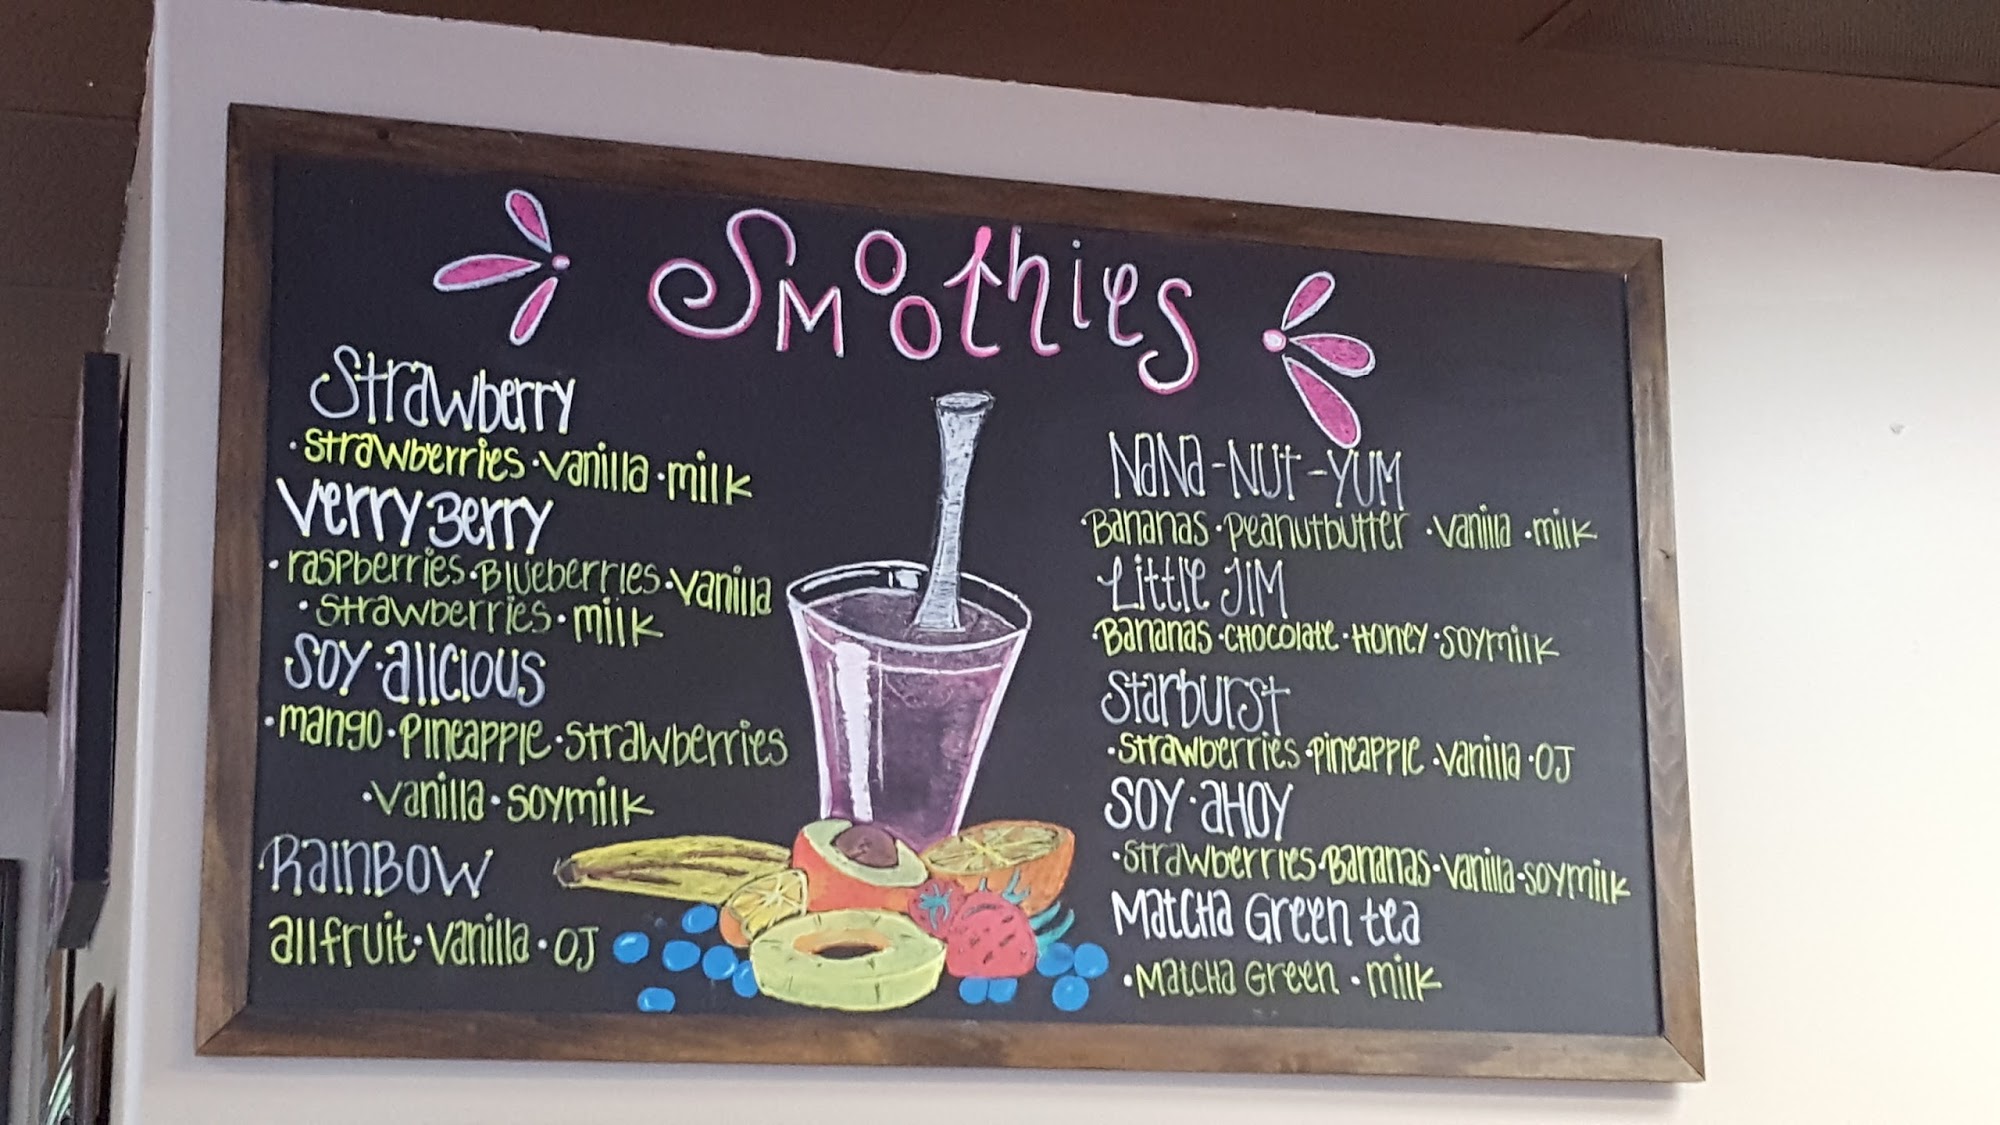 Smoothies
Strawberry
• Strawberries • vanilla • milk
Verry Berry
• raspberries • Blueberries • vanilla
• Strawberries • milk
SOY • alicious
• mango • Pineapple • Strawberries
• vanilla • soymilk
RainBOW
all fruit • vanilla • OJ
NaNa - NUt - YUM
• Bananas • Peanutbutter • vanilla • milk
Little JIM
• Bananas • CHocolate • Honey • soymilk
Starburst
• Strawberries • Pineapple • vanilla • OJ
SOY • aHOY
• Strawberries • Bananas • vanilla • soymilk
MatcHa Green tea
• MatcHa Green • milk